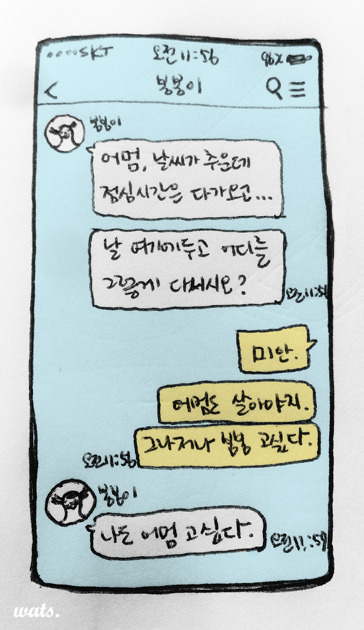 SKT 오전 11:56 96%
< 봉봉이
봉봉이
어멈, 날씨가 추운데
점심시간은 다가오고...
날 여기에두고 어디를
그렇게 다니시오?
오전 11:56
미안.
어멈도 살아야지.
그나저나 봉봉 고싶다.
오전 11:56
봉봉이
나도 어멈 고싶다.
오전 11:59
wats.